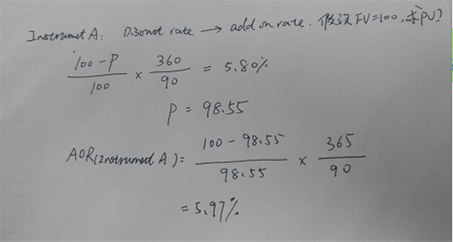 Instrumet A: Disonot rate → add on rate. 假设 FV=100, 求PV?
100-P/100 × 360/90 = 5.80%
P = 98.55
AOR(Instrument A) = 100-98.55/98.55 × 365/90
=5.97%